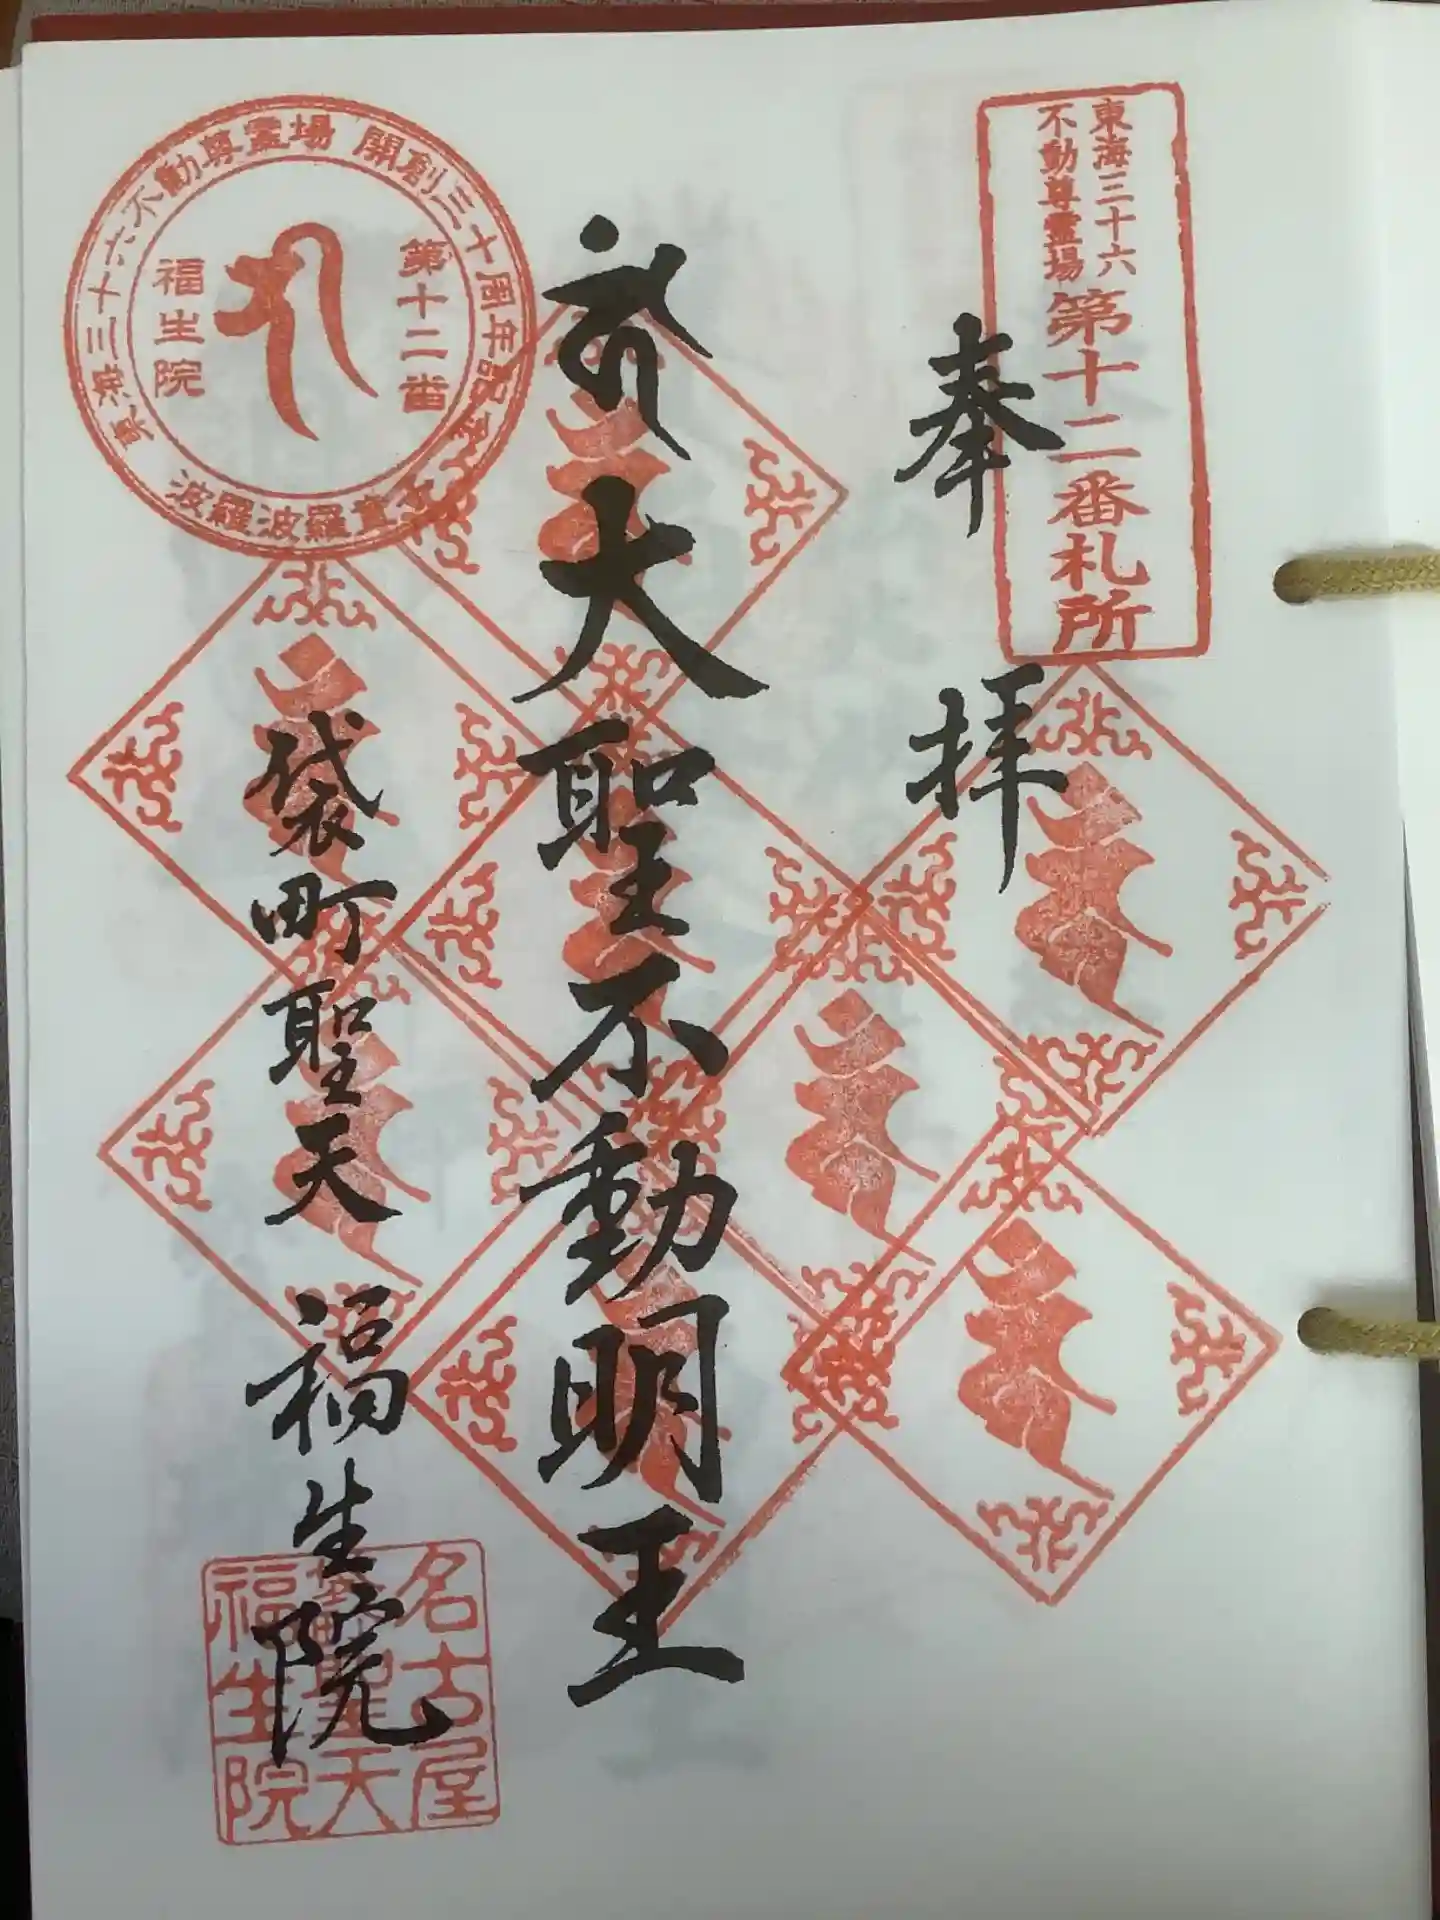 東海三十六
不動尊霊場
第十二番札所
奉拝
大聖不動明王
袋町聖天 福生院
東海三十六不動尊霊場 開創三十周年記念
波羅波羅蜜
第十二番
福生院
名古屋
聖天
福生院